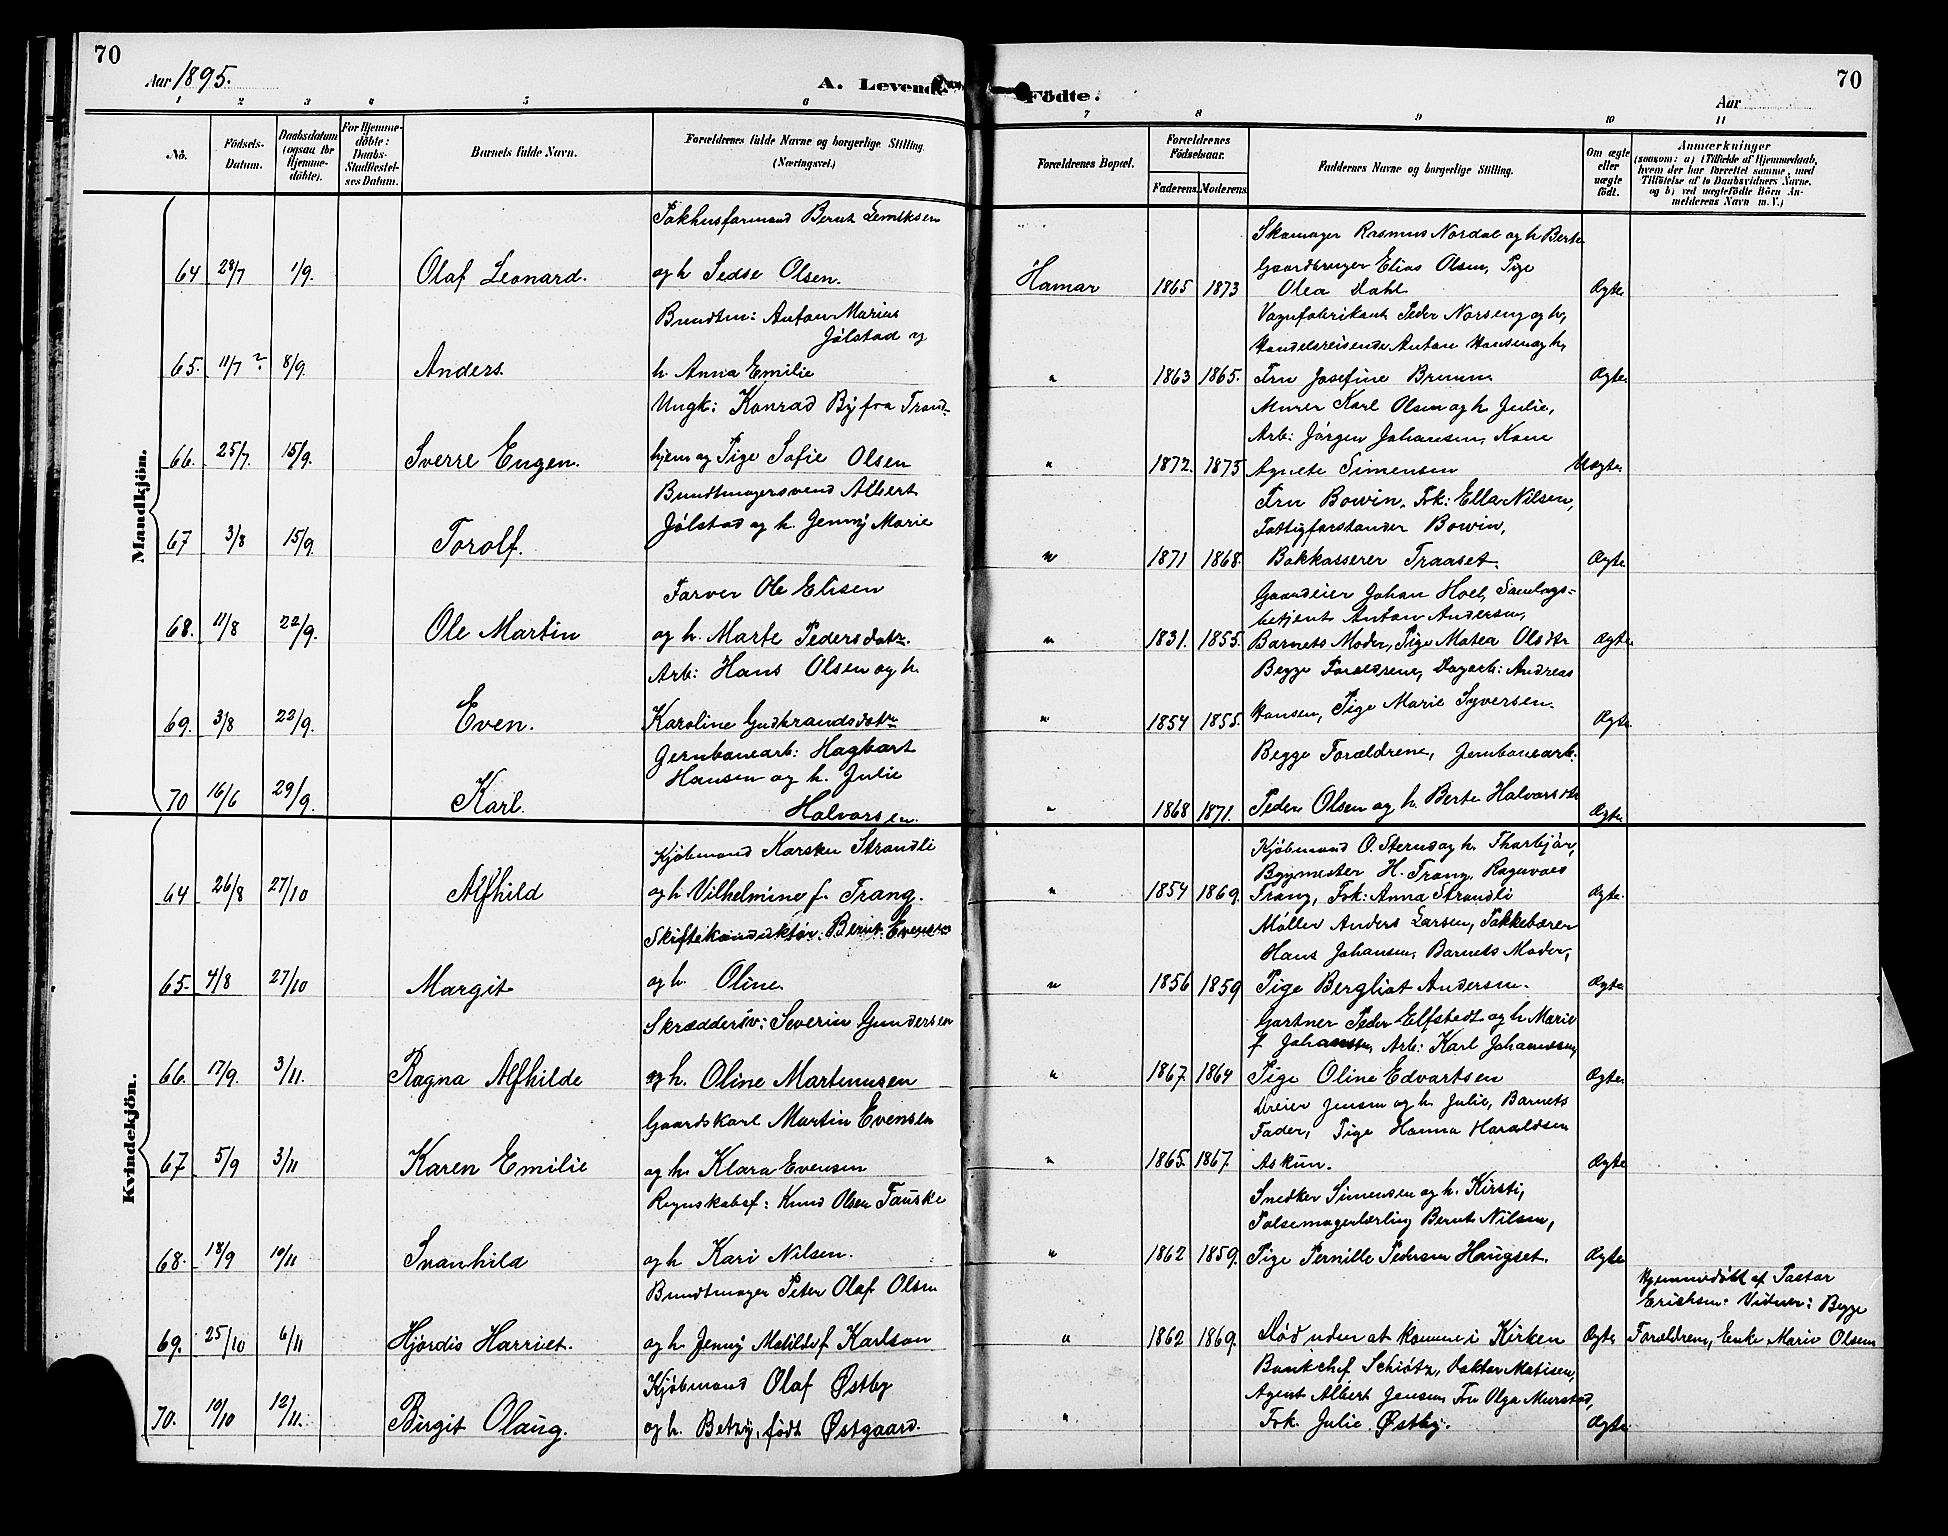 70
70
Aar 1895.
A. Levende Födte.
Aar
1 2 3 4 5 6 7 8 9 10 11
No.
Födsels-Datum.
Daabsdatum (ogsaa for Hjemme-döbte).
For Hjemme-döbte: Daabs-Stadfæstel-ses Datum.
Barnets fulde Navn.
Forældrenes fulde Navne og borgerlige Stilling. (Næringsvei.)
Forældrenes Bopæl.
Forældrenes Födselsaar.
Faderens. Moderens.
Faddernes Navne og borgerlige Stilling.
Om ægte eller uægte födt.
Anmærkninger
(saasom: a) i Tilfælde af Hjemmedaab, hvem der har forrettet samme, med Tilföielse af to Daabsvidners Navne, og b) ved uægtefödte Börn An-melderens Navn m. V.)
Mandkjön.
Pakhusformand Bernt
64 29/7 1/9. Olaf Leonard. og h Sedse Olsen. Hamar 1865 1873 Ægte
Skomager Rasmus Nordal og h Berte
Gaardbruger Elias Olsen, Pige
Olea Dahl
Bundtm: Anton Marius
Jølstad og
65. 11/7 ? 8/9. Anders. h. Anna Emilie " 1863 1865. Ægte
Vognfabrikant Peder Norseng og h,
Handelsreisende Anton Hansen og h,
Fru Josefine
Ungk: Konrad By fra Trond-
66. 25/7. 15/9. Sverre Eugen. hjem og Pige Sofie Olsen " 1872. 1873 Uægte
Murer Karl Olsen og h Julie,
Arb: Jørgen Johansen, Kone
Agnete Simensen
Bundtmagersvend Albert
67 3/8 15/9. Torolf. Jølstad og h. Jenny Marie " 1871 1868. Ægte
Fru Bowin, Frk: Ella Nilsen,
Fattigforstander Bowin,
Traaset.
Farver Ole Elisen
68. 11/8 22/9. Ole Martin og h. Marte Pedersdatr. " 1831. 1855. Ægte
Gaardeier Johan Hoel, Samlags=
betjent Anton Andersen,
Barnets Moder, Pige Matea Olsdtr
Arb: Hans Olsen og h.
69. 3/8 22/9. Even. Karoline Gudbrandsdatr " 1854 1855. Ægte
Begge Forældrene, Dagarb: Andreas
Hansen, Pige Marie Syversen.
Jernbanearb: Hagbart
Hansen og h. Julie
70 16/6 29/9. Karl. Halvorsen. " 1868 1871. Ægte
Begge Forældrene, Jernbanearb.
Peder Olsen og h. Berte Halvorsdtr
Kvindekjön.
Kjøbmand Karsten Strandli
64 26/8 27/10 Alfhild og h Vilhelmine f. Trang. " 1854 1869. Ægte.
Kjøbmand O. Stensd og h. Thorbjør,
Bygmester H. Trang, Ragnvald
Trang, Frk: Anna Strandli
Skiftekonduktør: Bernt Evensen
65. 4/8 27/10 Margit og h. Oline. " 1856 1859 Ægte
Møller Anders Larsen, Pakkebærer
Hans Johansen, Barnets Moder,
Pige Bergliot Andersen.
Skræddersv: Severin Gundersen
66. 17/9. 3/11. Ragna Alfhilde og h. Oline Martinusen " 1867. 1864 Ægte
Gartner Peder Elfstedt og h Marie
f Johansen, Arb: Karl Johannesen,
Pige Oline Edvartsen
Gaardskarl Martin Evensen
67 5/9 3/11 Karen Emilie og h. Klara Evensen " 1865. 1867. Ægte
Dreier Jensen og h Julie, Barnets
Fader, Pige Hanna Haraldsen
Askim.
Regnskabsf: Knud Olsen Fauske
68. 18/9 10/11 Svanhild og h Kari Nilsen. " 1862 1859. Ægte
Snedker Simensen og h. Kirsti,
Pølsemagerlærling Bernt Nilsen,
Pige Pernille Pedersen Haugset.
Bundtmager Peter Olaf Olsen
69. 25/10 6/11 Hjördis Harriet. og h. Jenny Matilde f Karlson " 1862 1869. Død uden at komme i Kirken Ægte
Hjemmedöbt af Pastor
Erichsen. Vidner: Begge
Forældrene, Enke Marie Olsen
Kjøbmand Olaf Østby
70. 10/10 12/11. Birgit Olaug. og h. Betzy, født Østgaard. " Ægte
Bankchef Schiötz, Doktor Matisen,
Agent Albert Jensen, Fru Olga Murstad,
Frk. Julie Østby.